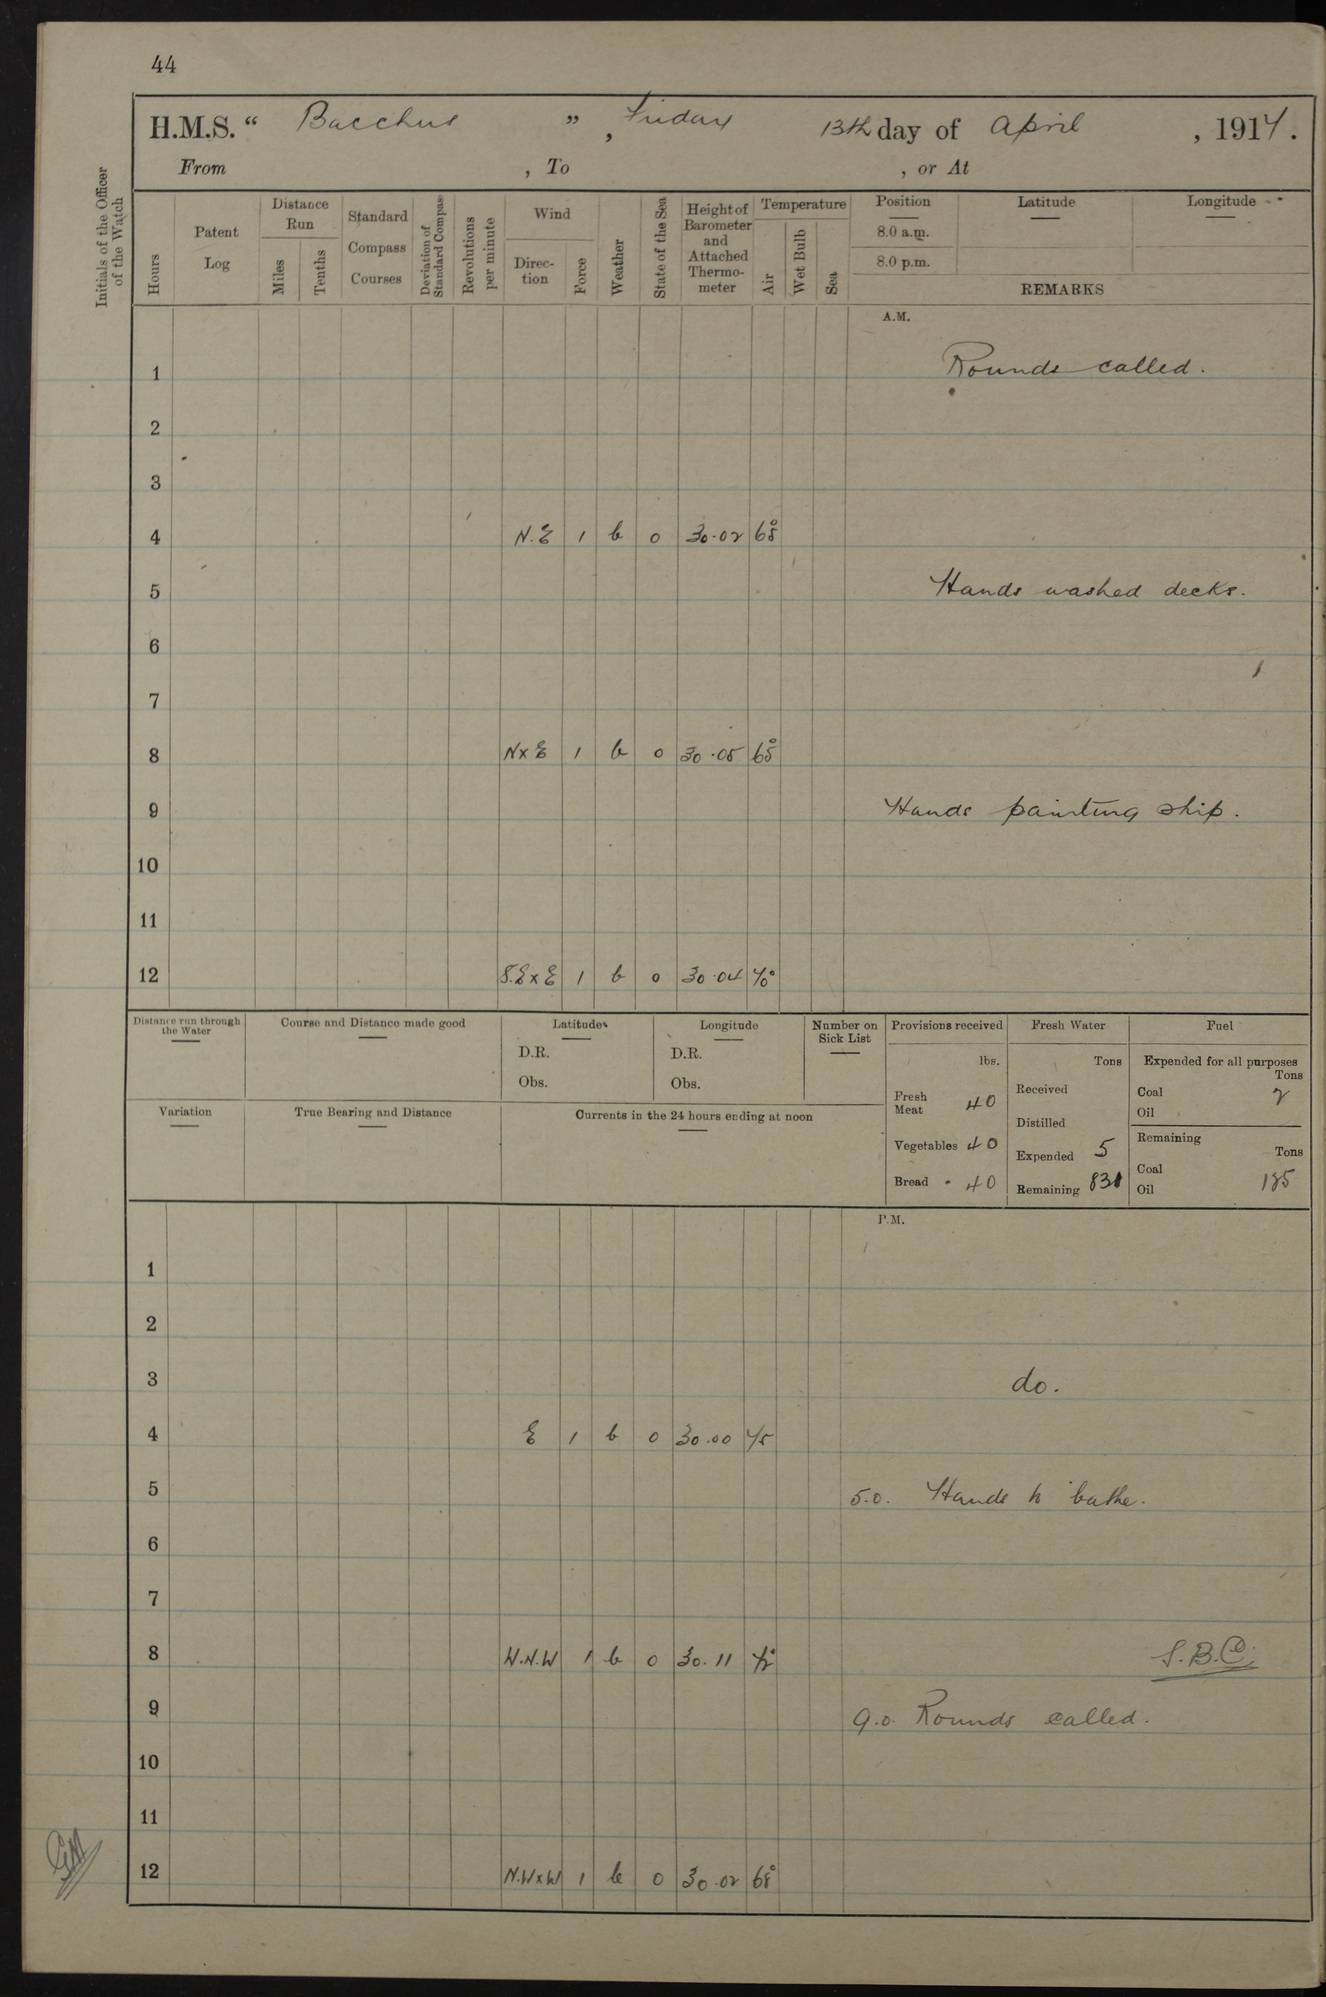 44
H.M.S. “ Bacchus ” , Friday 13th day of April , 1917.
From , To , or At
Initials of the Officer of the Watch
Hours
Patent Log
Distance Run
Miles
Tenths
Standard Compass Courses
Deviation of Standard Compass
Revolutions per minute
Wind
Direction
Force
Weather
State of the Sea
Height of Barometer and Attached Thermometer
Temperature
Air
Wet Bulb
Sea
Position
8.0 a.m.
8.0 p.m.
Latitude
Longitude
REMARKS
A.M.
1 Rounds called.
2
3
4 N.E 1 b 0 30.02 68°
5 Hands washed decks.
6
7
8 NxE 1 b 0 30.05 65°
9 Hands painting ship.
10
11
12 S.ExE 1 b 0 30.04 70°
Distance run through the Water
Course and Distance made good
Latitude
D.R.
Obs.
Longitude
D.R.
Obs.
Number on Sick List
Provisions received
lbs.
Fresh Meat 40
Vegetables 40
Bread 40
Fresh Water
Tons
Received
Distilled
Expended 5
Remaining 831
Fuel
Expended for all purposes
Tons
Coal 2
Oil
Remaining
Tons
Coal
Oil 185
Variation
True Bearing and Distance
Currents in the 24 hours ending at noon
P.M.
1
2
3 do.
4 E 1 b 0 30.00 75
5 5.0. Hands to bathe.
6
7
8 W.N.W 1 b 0 30.11 72°
S.B.C.
9 9.0. Rounds called.
10
11
12 N.WxW 1 b 0 30.02 68°